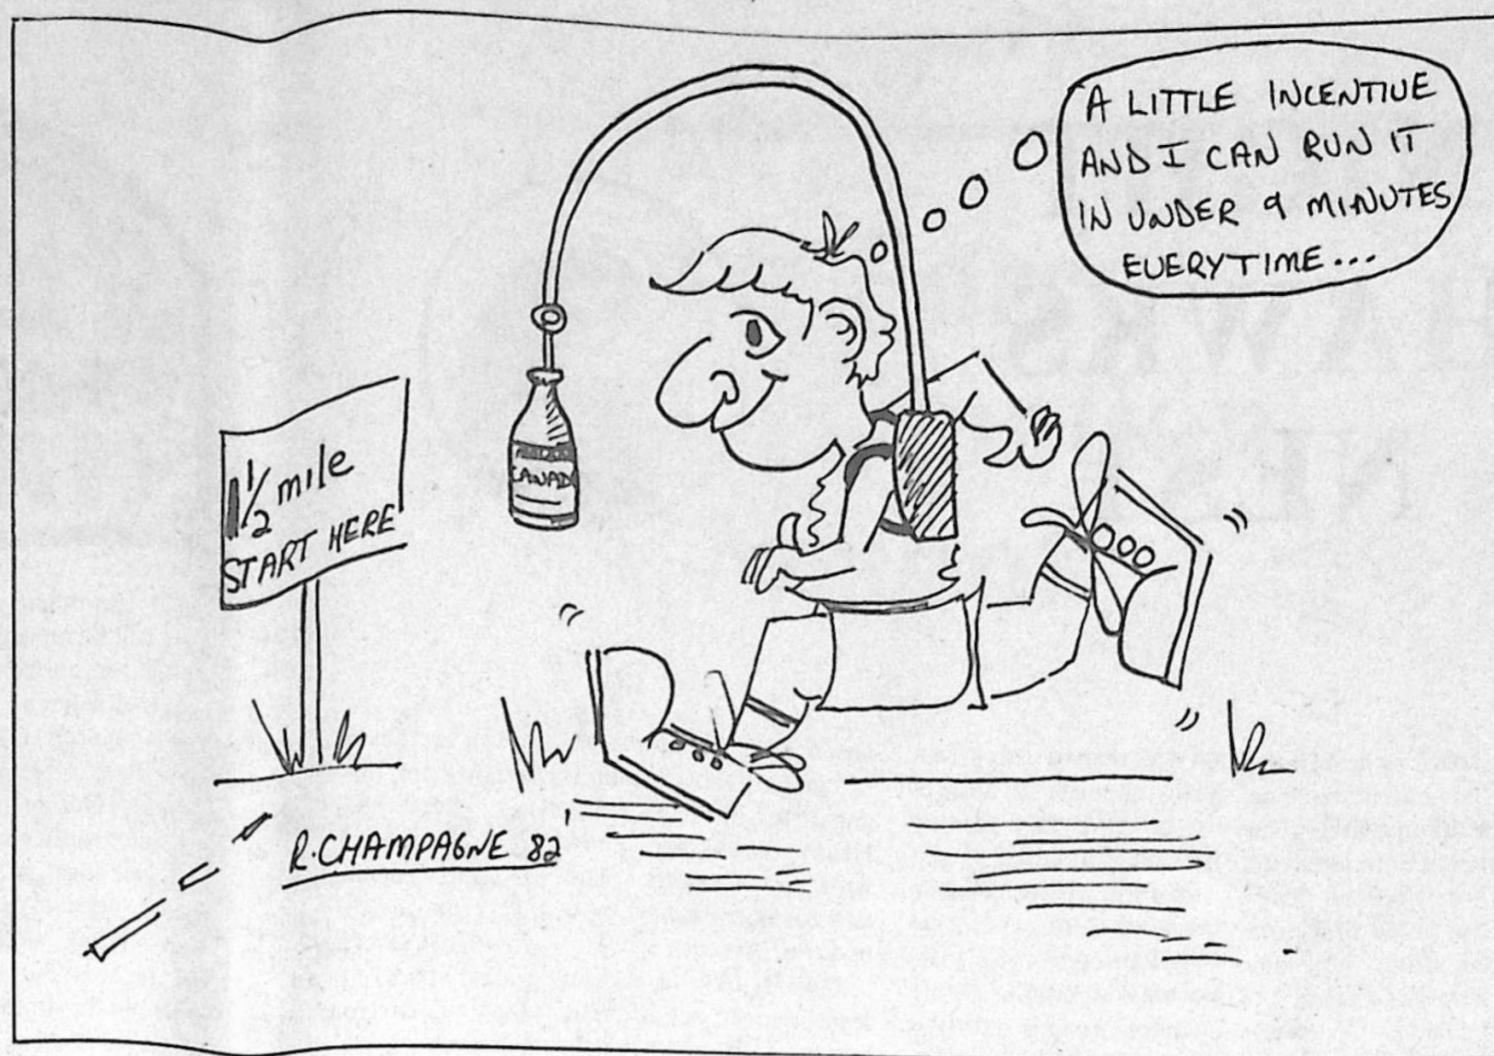 A LITTLE INCENTIVE
AND I CAN RUN IT
IN UNDER 9 MINUTES
EVERYTIME...
CANAD
1 1/2 mile
START HERE
R. CHAMPAGNE 82